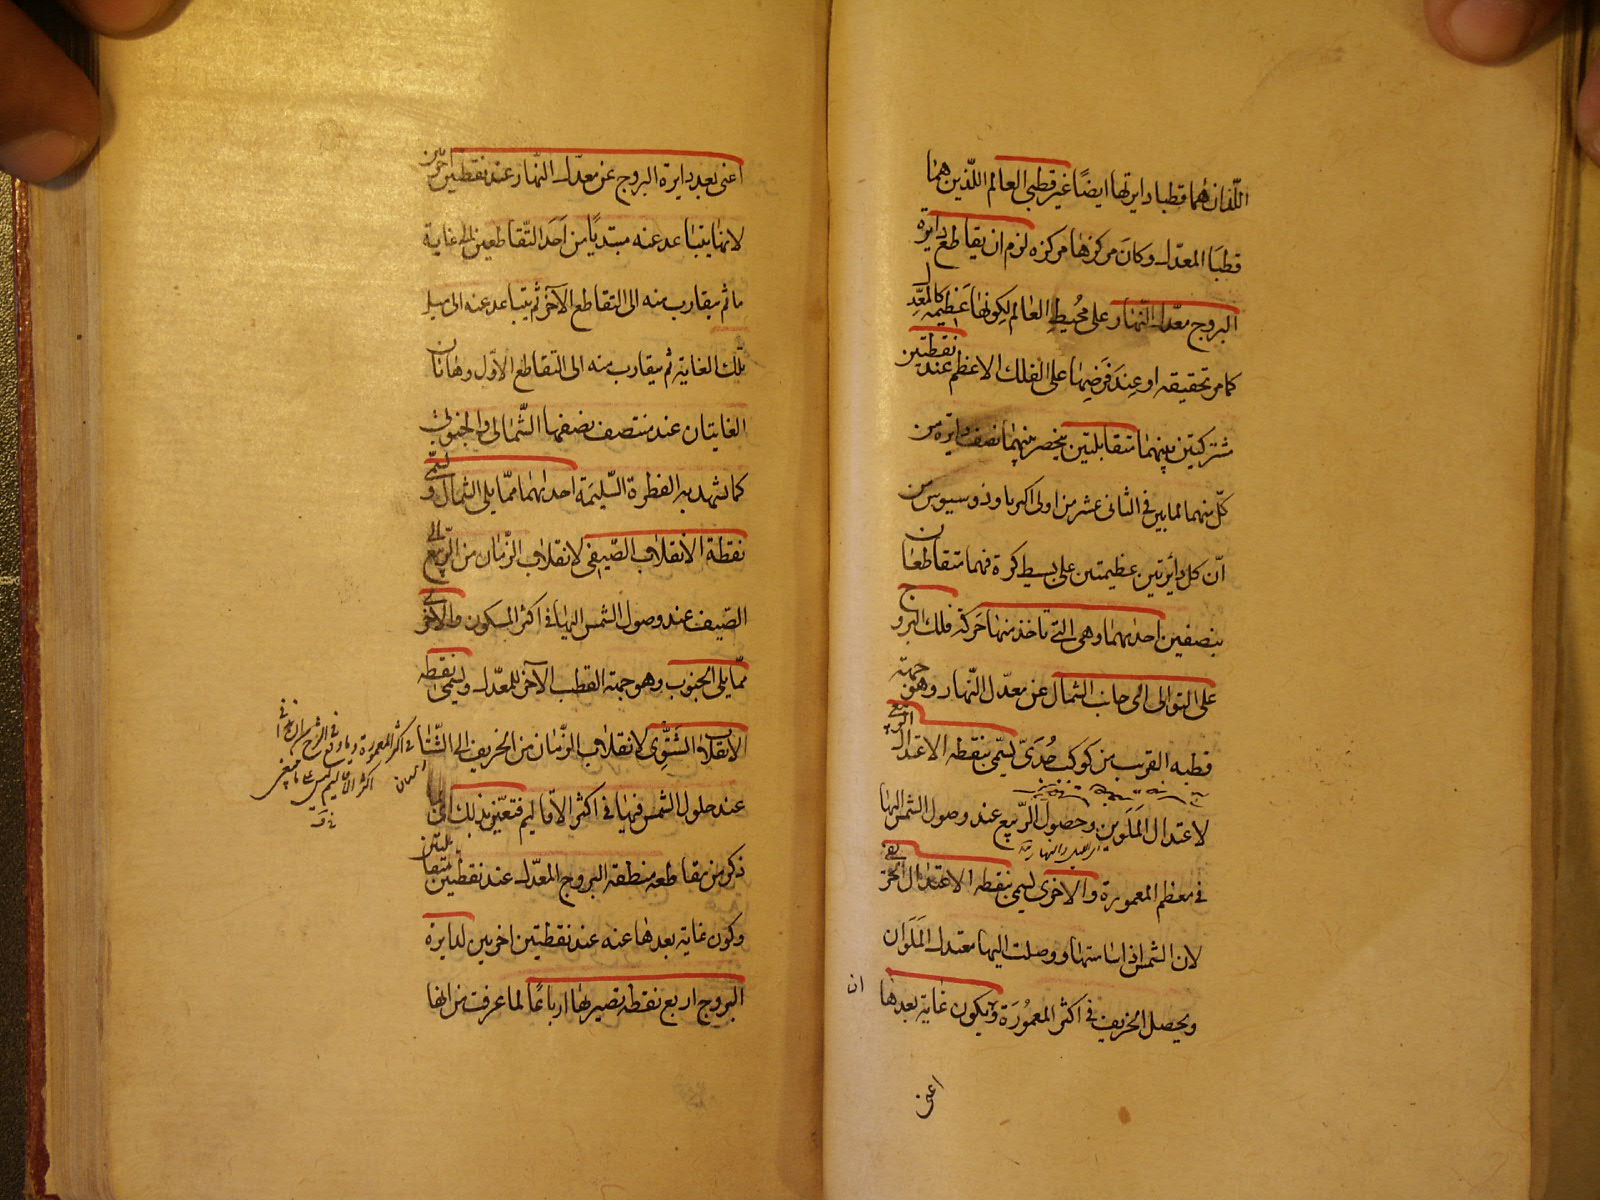 اللذان هما قطبا دايرتها ايضًا غير قطبي العالم اللذين هما
قطبا المعدل وكان مركزها مركزه لزم ان يقاطع دايرة
البروج معدل النهار على محيط العالم لكونها عظيمة كالمعدل
كما مر تحقيقه او عند فرضهما على الفلك الاعظم عند نقطتين
مشتركتين بينهما متقابلتين ينحصر بينهما نصف دايرة من
كل منهما لما بين في الثاني عشر من اولى اكر ثاوذوسيوس من
ان كل دائرتين عظيمتين على بسيط كرة فهما متقاطعان
بنصفين احديهما وهى التي تاخذ منها حركة فلك البروج
على التوالى الى جانب الشمال عن معدل النهار وهو جهة
قطبه القريب من كوكب جُدَىّ تسمى بنقطة الاعتدال الربيعى
لاعتدال المَلَوين وحصول الربيع عند وصول الشمس اليها
اى الليل والنهار
في معظم المعمورة والاخرى تسمى بنقطة الاعتدال الخريفى
لان الشمس اذا سامتها ووصلت اليها معتدل المَلَوان
ويحصل الخريف في اكثر المعمُورَة ويكون غاية بعدها
ان
اعنى
اعنى بعد دايرة البروج عن معدل النهار عند نقطتين اخريين
لانها يتباعد عنه مبتديًا من اَحَد التقاطعين الى غاية
ما ثم يتقارب منه الى التقاطع الآخر ثم يتباعد عنه الى مثل
تلك الغاية ثم يتقارب منه الى التقاطع الاوّل وهاتان
الغايتان عند منتصف نصفيها الشمالى والجنوبى
كما تشهد به الفطرة السليمة احديهما مما يلى الشمال وتسمى
نقطة الانقلاب الصيفى لانقلاب الزمان من الربيع الى
الصيف عند وصول الشمس اليها في اكثر المسكون والاخرى
مما يلى الجنوب وهو جهة القطب الآخر للمعدل وتسمى نقطة
الانقلاب الشتوى لانقلاب الزمان من الخريف الى الشتا
في اكثر المعمورة وما وقع في الشرح
عند حلول الشمس فيها في اكثر الاقاليم فتعين بذلك الذى
ذكر من تقاطعه منطقة البروج المعدل عند نقطتين متقابلتين
وكون غاية بعدها عنه عند نقطتين اخريين لدايرة
البروج اربع نقطة تصيرها ارباعًا لما عرفت من انها